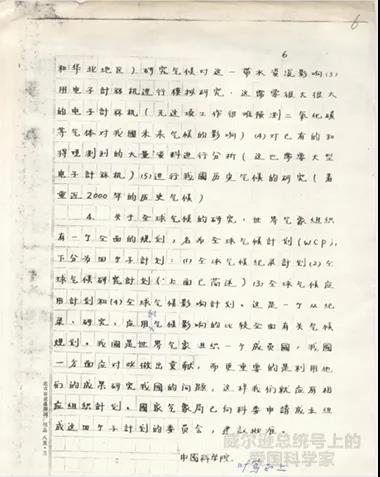 6
6
和华北地区）研究气候对这一带水资源影响(3)
用电子計祘机进行模拟研究，这需要很大很大
的电子計祘机（无这项工作很难预测二氧化碳
等气体对我國未来气候的影响）(4)对已有的和
将观测到的大量资料进行分析（这也需要大型
电子計祘机）(5)进行我國历史气候的研究（着
重近2000年的历史气候）
4. 关于全球气候的研究，世界气象組织
有一个全面的规划，名为全球气候計划(WCP)，
下分为四个子計划：(1)全球气候纪录計划(2)全
球气候研究計划(上面已简述)(3)全球气候应
用計划和(4)全球气候影响計划。这是一个从纪
录、研究、应用到气候影响的比较全面有关气候
规划。我國是世界气象組织一个成员國，我國
一方面应对此做出贡献，而更重要的是利用他
们的成果研究我國的问题，这样我们就应有相
应組织計划。國家气象局已向科委申請成立組
成这四个子計划的委员会，建议批准。
中國科学院
叶笃正上
威尔逊总统号上的
爱国科学家